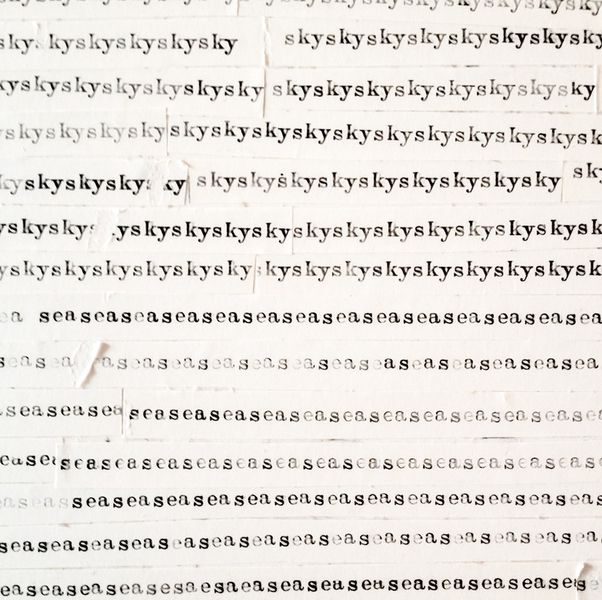 sky kyskyskyskysky skyskyskyskyskyskyskysky
kyskyskyskyskyskysky skyskyskyskyskyskyskysky
skyskyskysky skyskyskyskyskyskyskyskyskyskysk
kyskyskysky ky skyskyskyskyskyskyskyskysky sky
yskysky yskyskyskysky skyskyskyskyskyskyskysk
yskyskyskyskyskysky skyskyskyskyskyskyskyskysk
ea seaseaseaseaseaseaseaseaseaseaseaseaseasea
seasea aseaseaseaseaseaseaseaseaseaseaseasea
seaseasea seaseaseaseaseaseaseaseaseaseasease
ease seaseaseaseaseaseaseaseaseaseaseaseaseas
easea seaseaseaseaseaseaseaseaseaseaseaseasea
seaseaseaseaseaseaseaseaseaseaseaseaseaseasea
easeaseaseasesaesaeaseaseaseaseaseaseasease